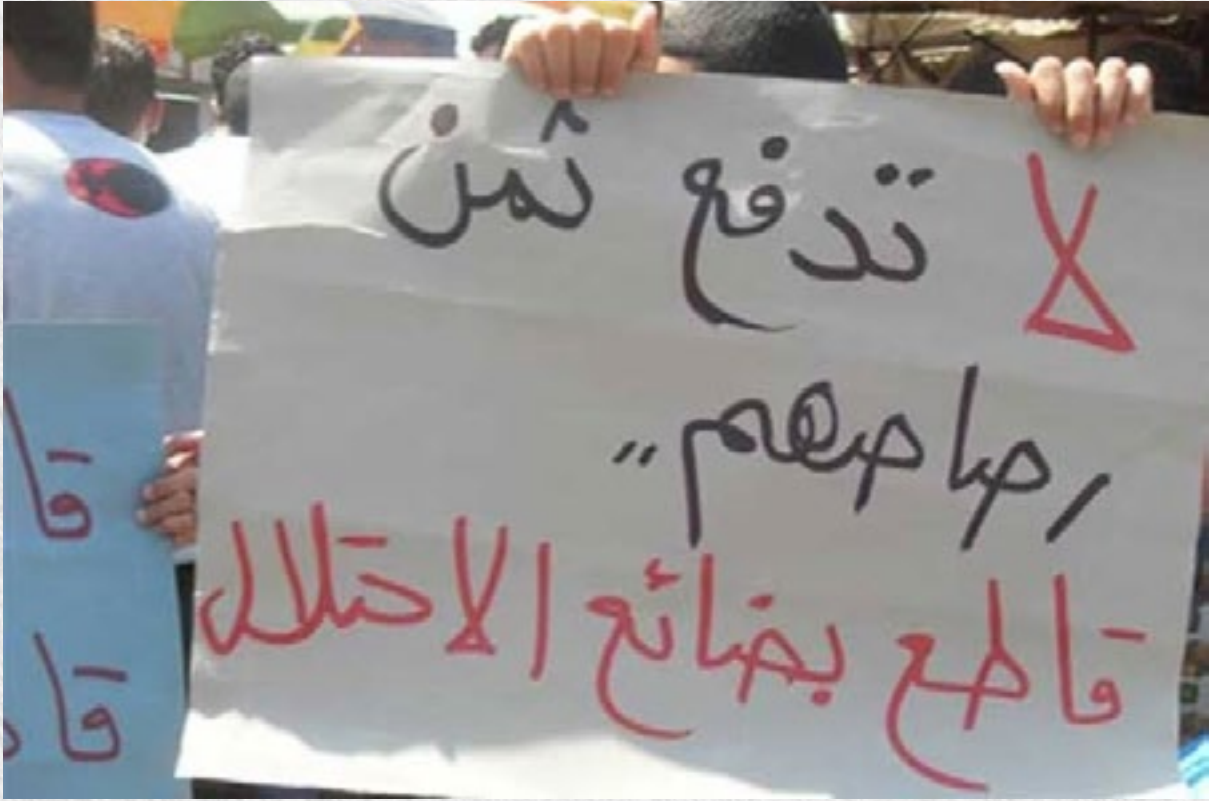 لا تدفع ثمن
رصاصهم..
قاطع بضائع الاحتلال
قا
قا